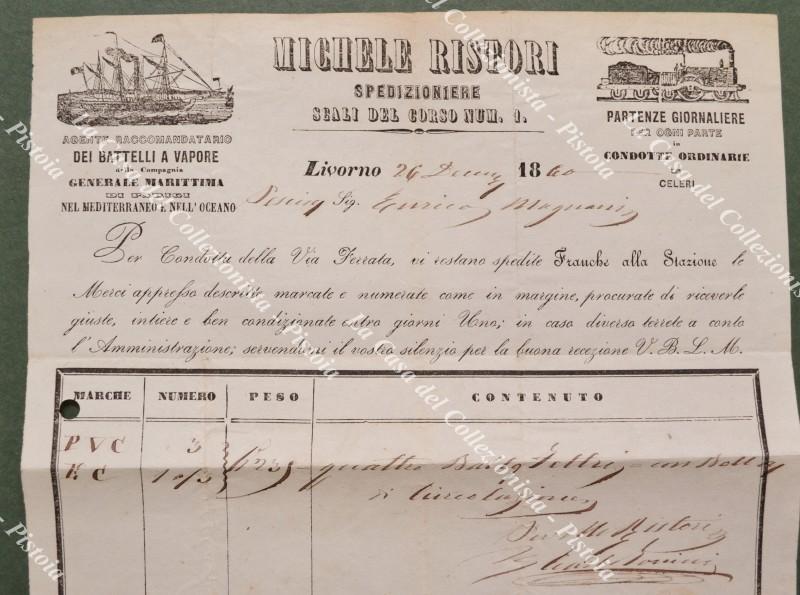 MICHELE RISTORI
SPEDIZIONIERE
SCALI DEL CORSO NUM. 1.
AGENTE RACCOMANDATARIO
DEI BATTELLI A VAPORE
della Compagnia
GENERALE MARITTIMA
DI PARIGI
NEL MEDITERRANEO E NELL'OCEANO
PARTENZE GIORNALIERE
PER OGNI PARTE
in
CONDOTTE ORDINARIE
E
CELERI
Livorno 26 1860
Sig. Enrico Magnani
Per Condotta della Via Ferrata, vi restano spedite Franche alla Stazione le
Merci appresso descritte marcate e numerate come in margine, procurate di riceverle
giuste, intiere e ben condizionate entro giorni Uno; in caso diverso terrete a conto
l'Amministrazione; servendomi il vostro silenzio per la buona recezione V. B. L. M.
MARCHE NUMERO PESO CONTENUTO
PVC 3
EC quattro
di Circolazione
Ristori
La Casa del Collezionista - Pistoia